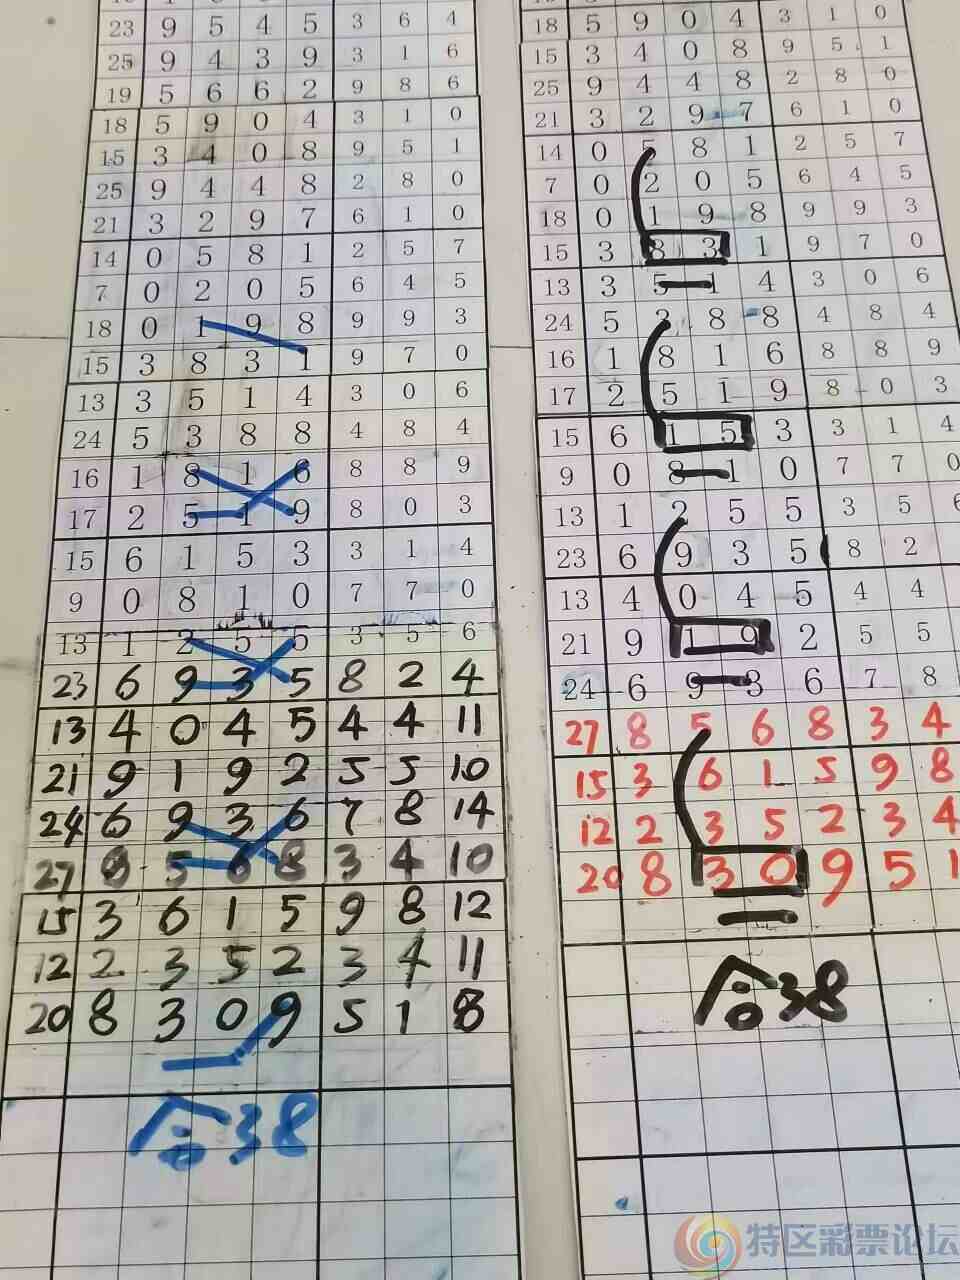 23 9 5 4 5 3 6 4
25 9 4 3 9 3 1 6
19 5 6 6 2 9 8 6
18 5 9 0 4 3 1 0
15 3 4 0 8 9 5 1
25 9 4 4 8 2 8 0
21 3 2 9 7 6 1 0
14 0 5 8 1 2 5 7
7 0 2 0 5 6 4 5
18 0 1 9 8 9 9 3
15 3 8 3 1 9 7 0
13 3 5 1 4 3 0 6
24 5 3 8 8 4 8 4
16 1 8 1 6 8 8 9
17 2 5 1 9 8 0 3
15 6 1 5 3 3 1 4
9 0 8 1 0 7 7 0
13 1 2 5 5 3 5 6
23 6 9 3 5 8 2 4
13 4 0 4 5 4 4 11
21 9 1 9 2 5 5 10
24 6 9 3 6 7 8 14
27 8 5 6 8 3 4 10
15 3 6 1 5 9 8 12
12 2 3 5 2 3 4 11
20 8 3 0 9 5 1 8
合38
18 5 9 0 4 3 1 0
15 3 4 0 8 9 5 1
25 9 4 4 8 2 8 0
21 3 2 9 7 6 1 0
14 0 5 8 1 2 5 7
7 0 2 0 5 6 4 5
18 0 1 9 8 9 9 3
15 3 8 3 1 9 7 0
13 3 5 1 4 3 0 6
24 5 3 8 8 4 8 4
16 1 8 1 6 8 8 9
17 2 5 1 9 8 0 3
15 6 1 5 3 3 1 4
9 0 8 1 0 7 7 0
13 1 2 5 5 3 5 6
23 6 9 3 5 8 2
13 4 0 4 5 4 4
21 9 1 9 2 5 5
24 6 9 3 6 7 8
27 8 5 6 8 3 4
15 3 6 1 5 9 8
12 2 3 5 2 3 4
20 8 3 0 9 5 1
合38
特区彩票论坛